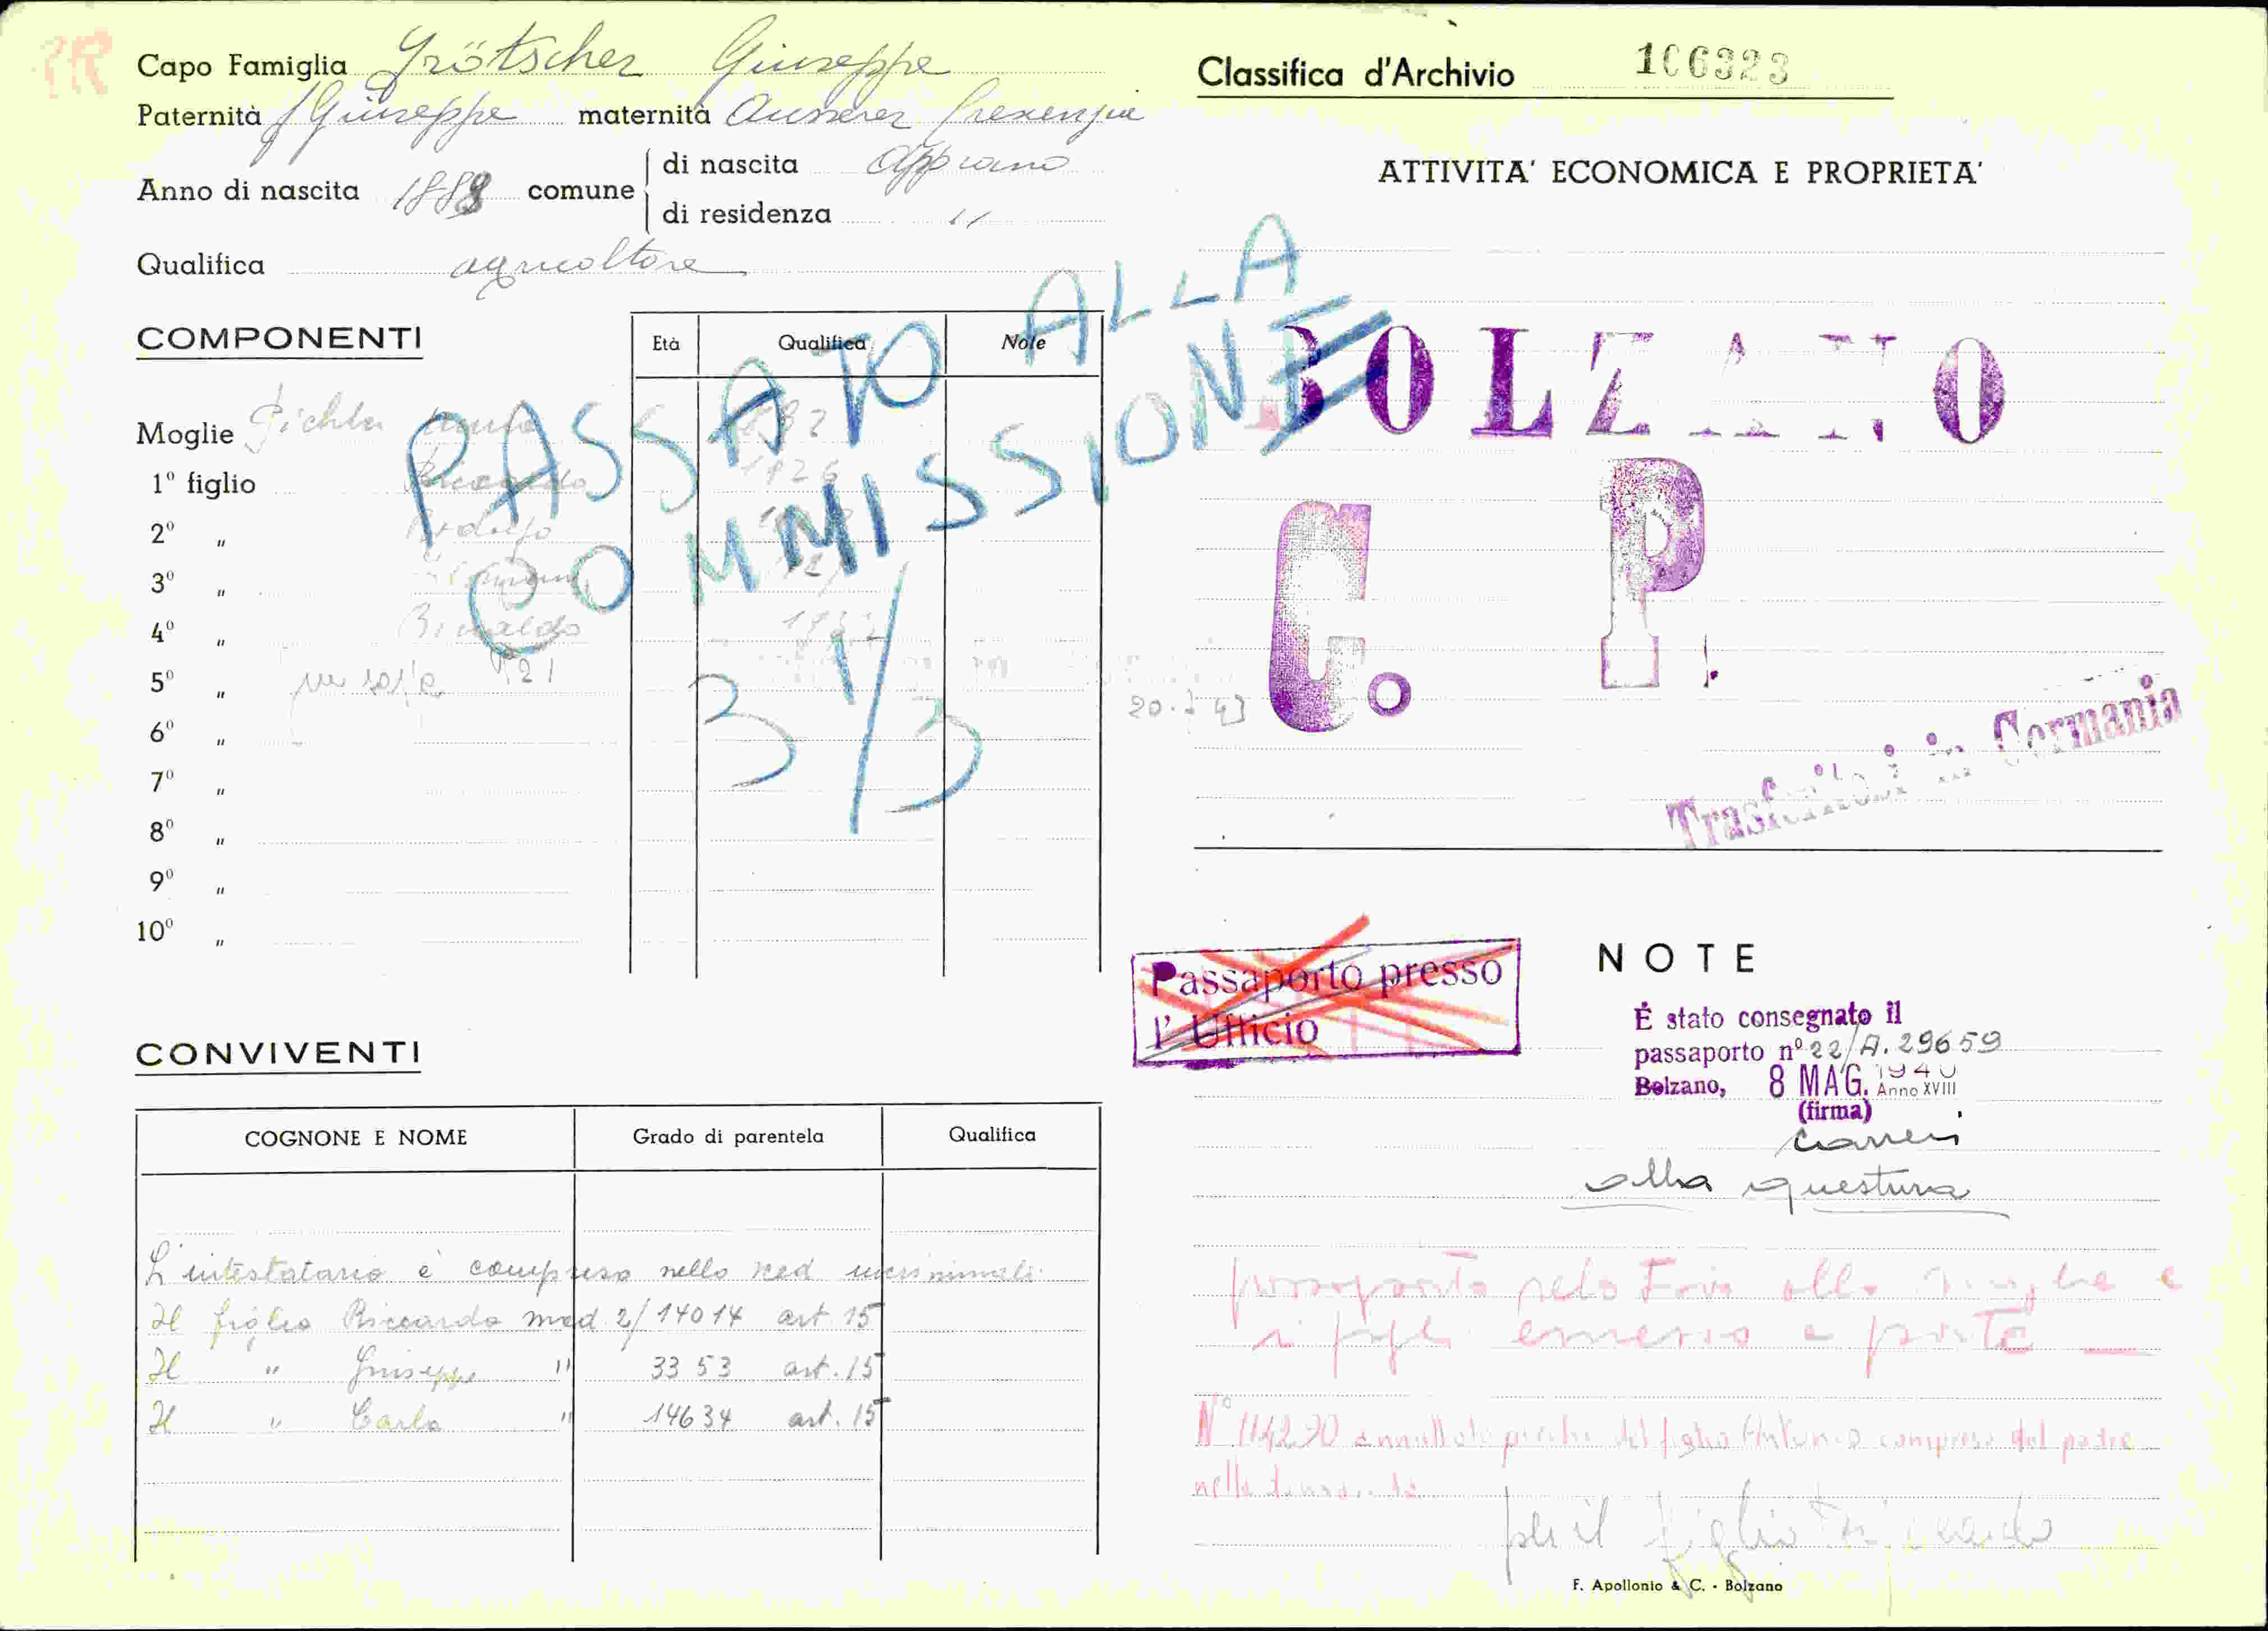 Capo Famiglia Grötscher Giuseppe
Paternità f Giuseppe maternità Ausserer Crescenzia
Anno di nascita 1888 comune
di nascita Appiano
di residenza "
Qualifica agricoltore
COMPONENTI
Età Qualifica Note
Moglie Pichler
1° figlio Riccardo 1926
2° " Rodolfo
3° "
4° "
5° " 1921
6° "
7° "
8° "
9° "
10° "
PASSATO ALLA
COMMISSIONE
3/3
CONVIVENTI
COGNONE E NOME Grado di parentela Qualifica
L'intestatario è compreso nello
Il figlio Riccardo mod. 2/14014 art. 15
Il " Giuseppe " 3353 art. 15
Il " Carlo " 14634 art. 15
Classifica d'Archivio 106323
ATTIVITA' ECONOMICA E PROPRIETA'
BOLZANO
C. P.
Trasferitosi in Germania
Passaporto presso
l'Ufficio
NOTE
È stato consegnato il
passaporto n° 22/A.29659
Bolzano, 8 MAG. 1940 Anno XVIII
(firma)
alla questura
passaporto alla moglie e
N° annullato perchè del figlio Antonio compreso dal padre
nella
per il figlio
F. Apollonio & C. - Bolzano